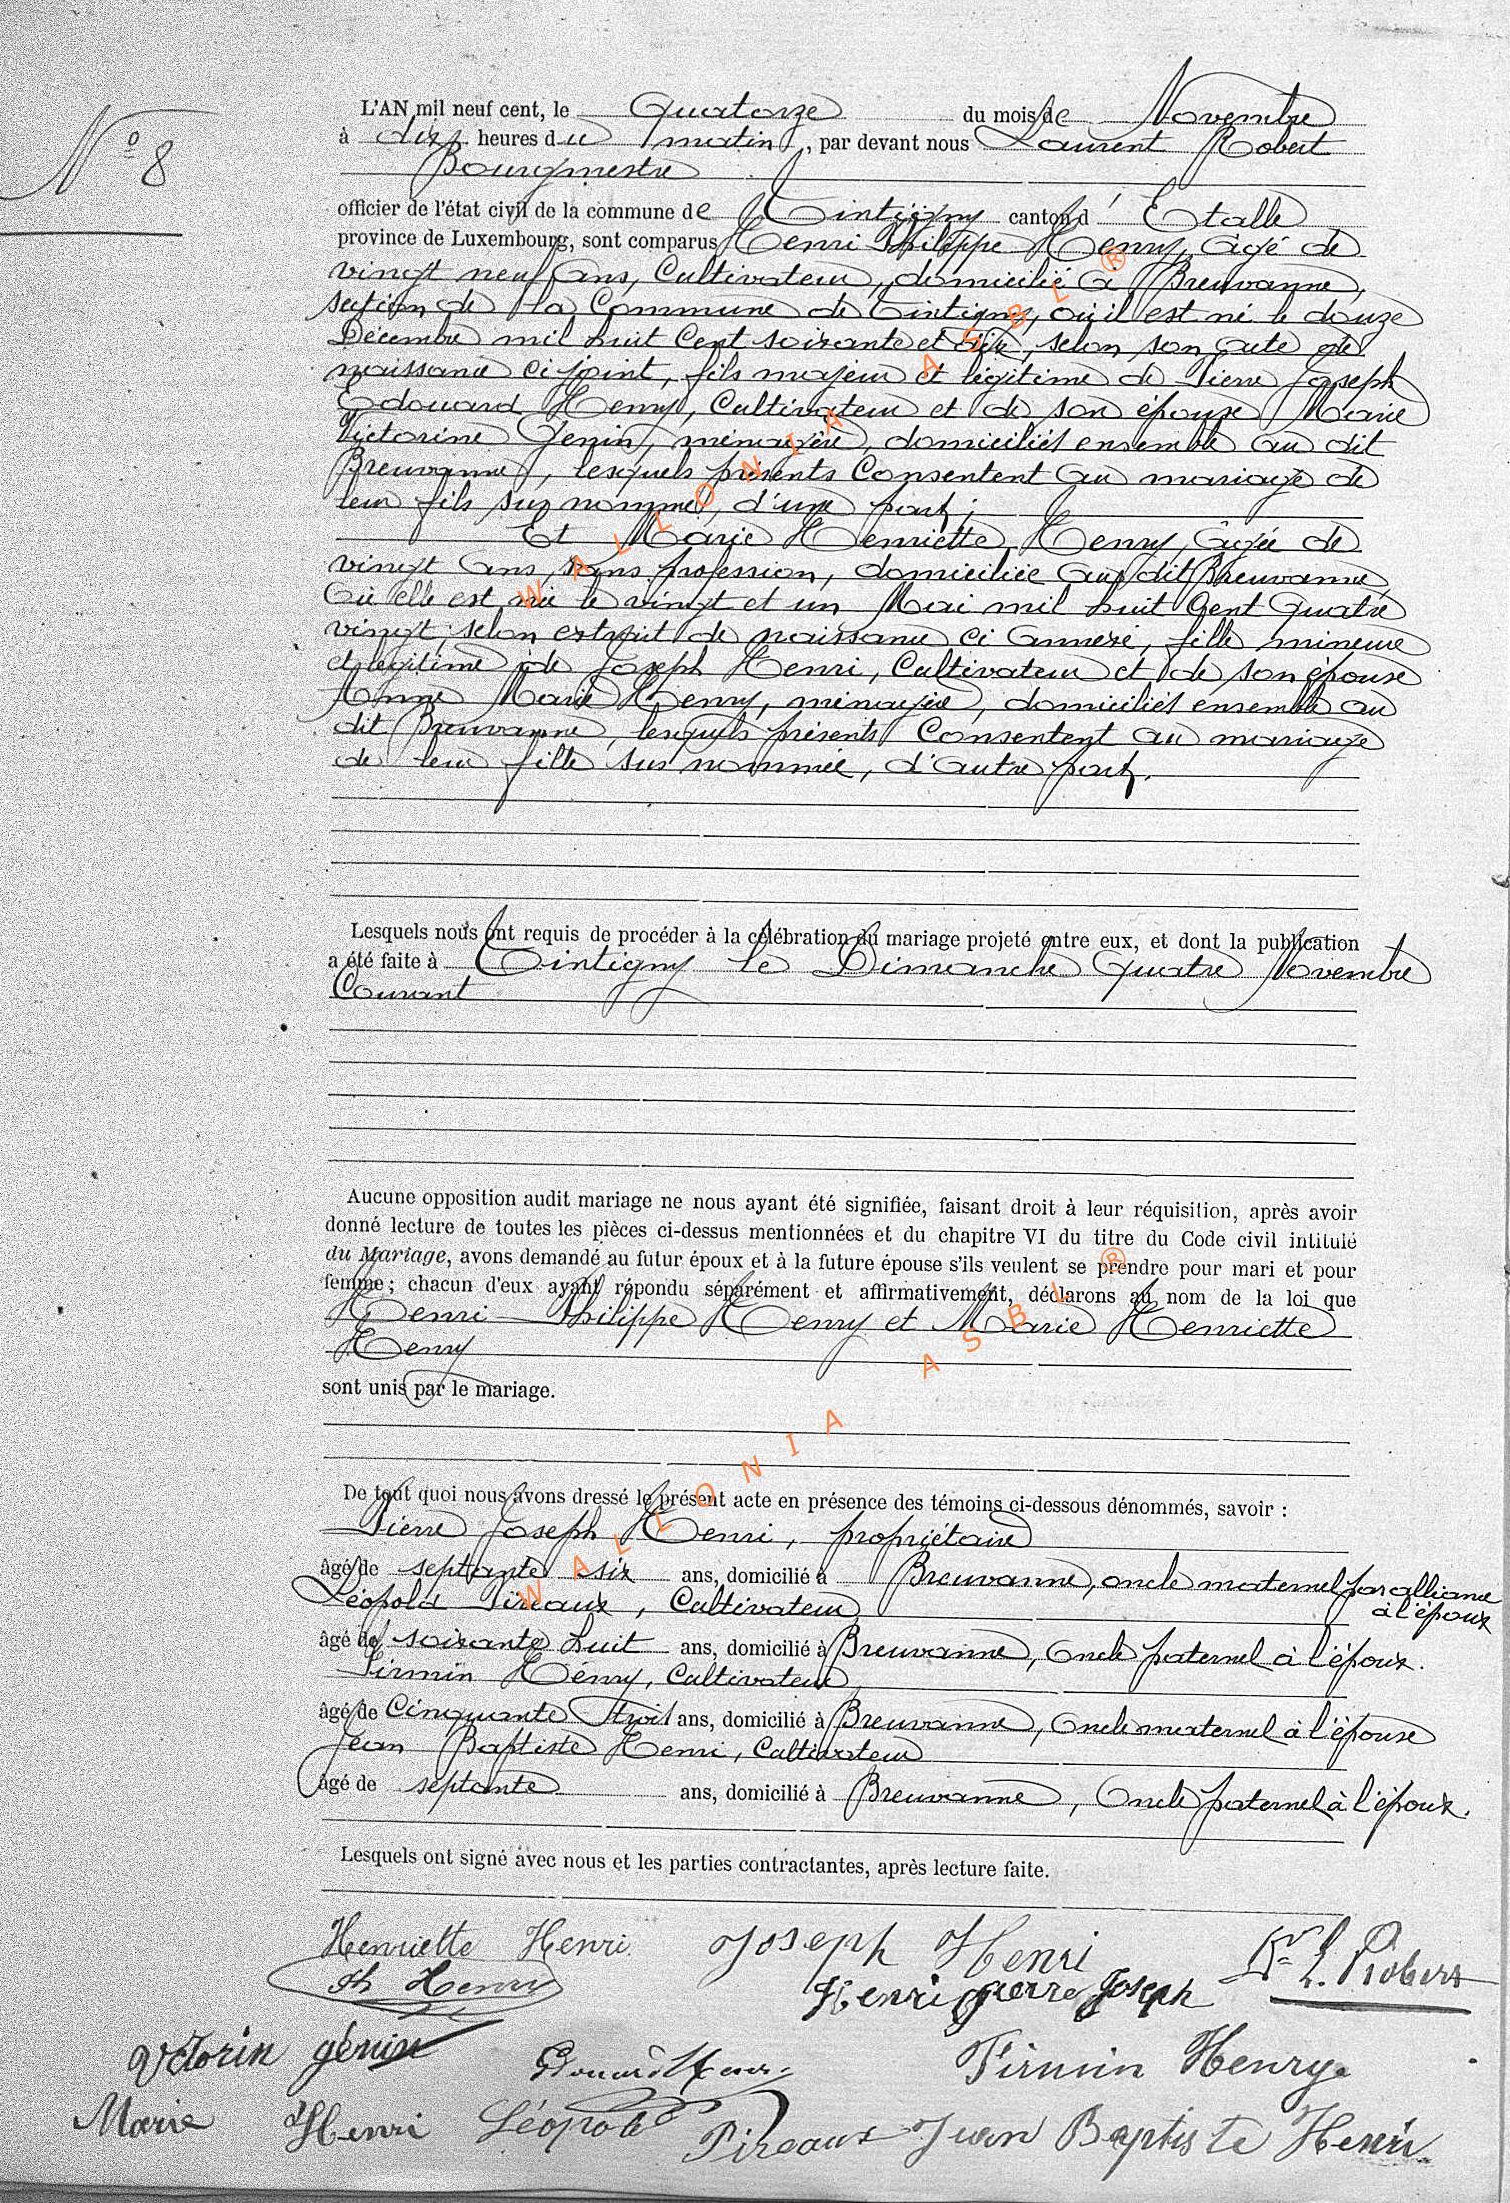 N° 8
L'AN mil neuf cent, le Quatorze du mois de Novembre
à dix heures du matin, par devant nous Laurent Robert
Bourgmestre
officier de l'état civil de la commune de Tintigny canton d'Etalle
province de Luxembourg, sont comparus Henri Philippe Henry, âgé de
vingt neuf ans, Cultivateur, domicilié à Breuvanne,
section de la Commune de Tintigny, où il est né le douze
Décembre mil huit Cent soixante et dix, selon son acte de
naissance ci joint, fils majeur et légitime de Pierre Joseph
Edouard Henry, Cultivateur et de son épouse Marie
Victorine Genin, ménagère, domiciliés ensemble au dit
Breuvanne, lesquels présents Consentent au mariage de
leur fils sus nommé, d'une part;
Et Marie Henriette Henry, âgée de
vingt ans, sans profession, domiciliée au dit Breuvanne,
où elle est née le vingt et un Mai mil huit Cent quatre
vingt, selon extrait de naissance ci annexé, fille mineure
et légitime de Joseph Henri, Cultivateur et de son épouse
Anne Marie Henry, ménagère, domiciliés ensemble au
dit Breuvanne, lesquels présents Consentent au mariage
de leur fille sus nommée, d'autre part.
Lesquels nous ont requis de procéder à la célébration du mariage projeté entre eux, et dont la publication
a été faite à Tintigny le Dimanche quatre Novembre
Courant
Aucune opposition audit mariage ne nous ayant été signifiée, faisant droit à leur réquisition, après avoir
donné lecture de toutes les pièces ci-dessus mentionnées et du chapitre VI du titre du Code civil intitulé
du Mariage, avons demandé au futur époux et à la future épouse s'ils veulent se prendre pour mari et pour
femme; chacun d'eux ayant répondu séparément et affirmativement, déclarons au nom de la loi que
Henri Philippe Henry et Marie Henriette
Henry
sont unis par le mariage.
De tout quoi nous avons dressé le présent acte en présence des témoins ci-dessous dénommés, savoir :
Pierre Joseph Henri, propriétaire
âgé de septante six ans, domicilié à Breuvanne, oncle maternel par alliance
à l'époux
Léopold Pireaux, Cultivateur
âgé de soixante huit ans, domicilié à Breuvanne, oncle paternel à l'époux.
Firmin Henry, Cultivateur
âgé de Cinquante trois ans, domicilié à Breuvanne, Oncle maternel à l'épouse
Jean Baptiste Henri, Cultivateur
âgé de septante ans, domicilié à Breuvanne, Oncle paternel à l'époux.
Lesquels ont signé avec nous et les parties contractantes, après lecture faite.
Henriette Henri Joseph Henri L. Robert
Ph Henry Henri pierre Joseph
Victorin génin Edouard Henri Firmin Henry
Marie Henri Léopold Pireaux Jean Baptiste Henri
WALLONIA ASBL ®
WALLONIA ASBL ®